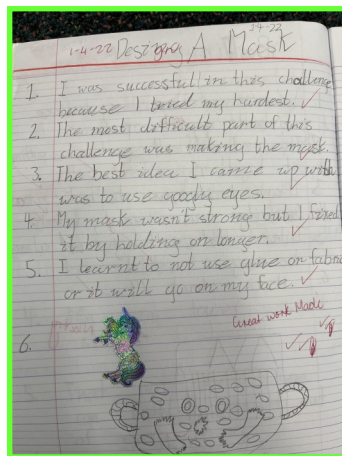 1-4-22 Desizing A Mask
1-4-22
1. I was successfull in this challenge
because I tried my hardest.
2. The most difficult part of this
challenge was making the mask.
3. The best idea I came up with
was to use googly eyes.
4. My mask wasn't strong but I fixed
it by holding on longer.
5. I learnt to not use glue on fabric
or it will go on my face.
Great work
6.